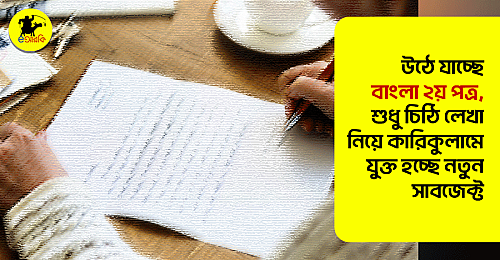 eআরকি
উঠে যাচ্ছে
বাংলা ২য় পত্র,
শুধু চিঠি লেখা
নিয়ে কারিকুলামে
যুক্ত হচ্ছে নতুন
সাবজেক্ট